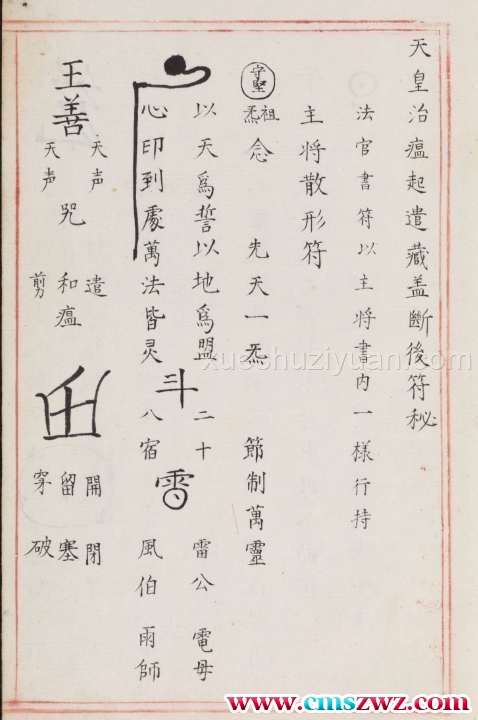 天皇治瘟起遣藏盖斷後符秘
法官書符以主將書内一樣行持
主將散形符
守堅
祖炁 念 先天一炁 節制萬靈
以天爲誓以地爲盟 二十 雷公 電母
心印到處萬法皆灵 八宿 風伯 雨師
斗
雷
王善
天声 咒 天声
遣 和瘟 剪
開 閉
留 塞
穿 破
xueshuziyuan.com
www.cmszwz.com